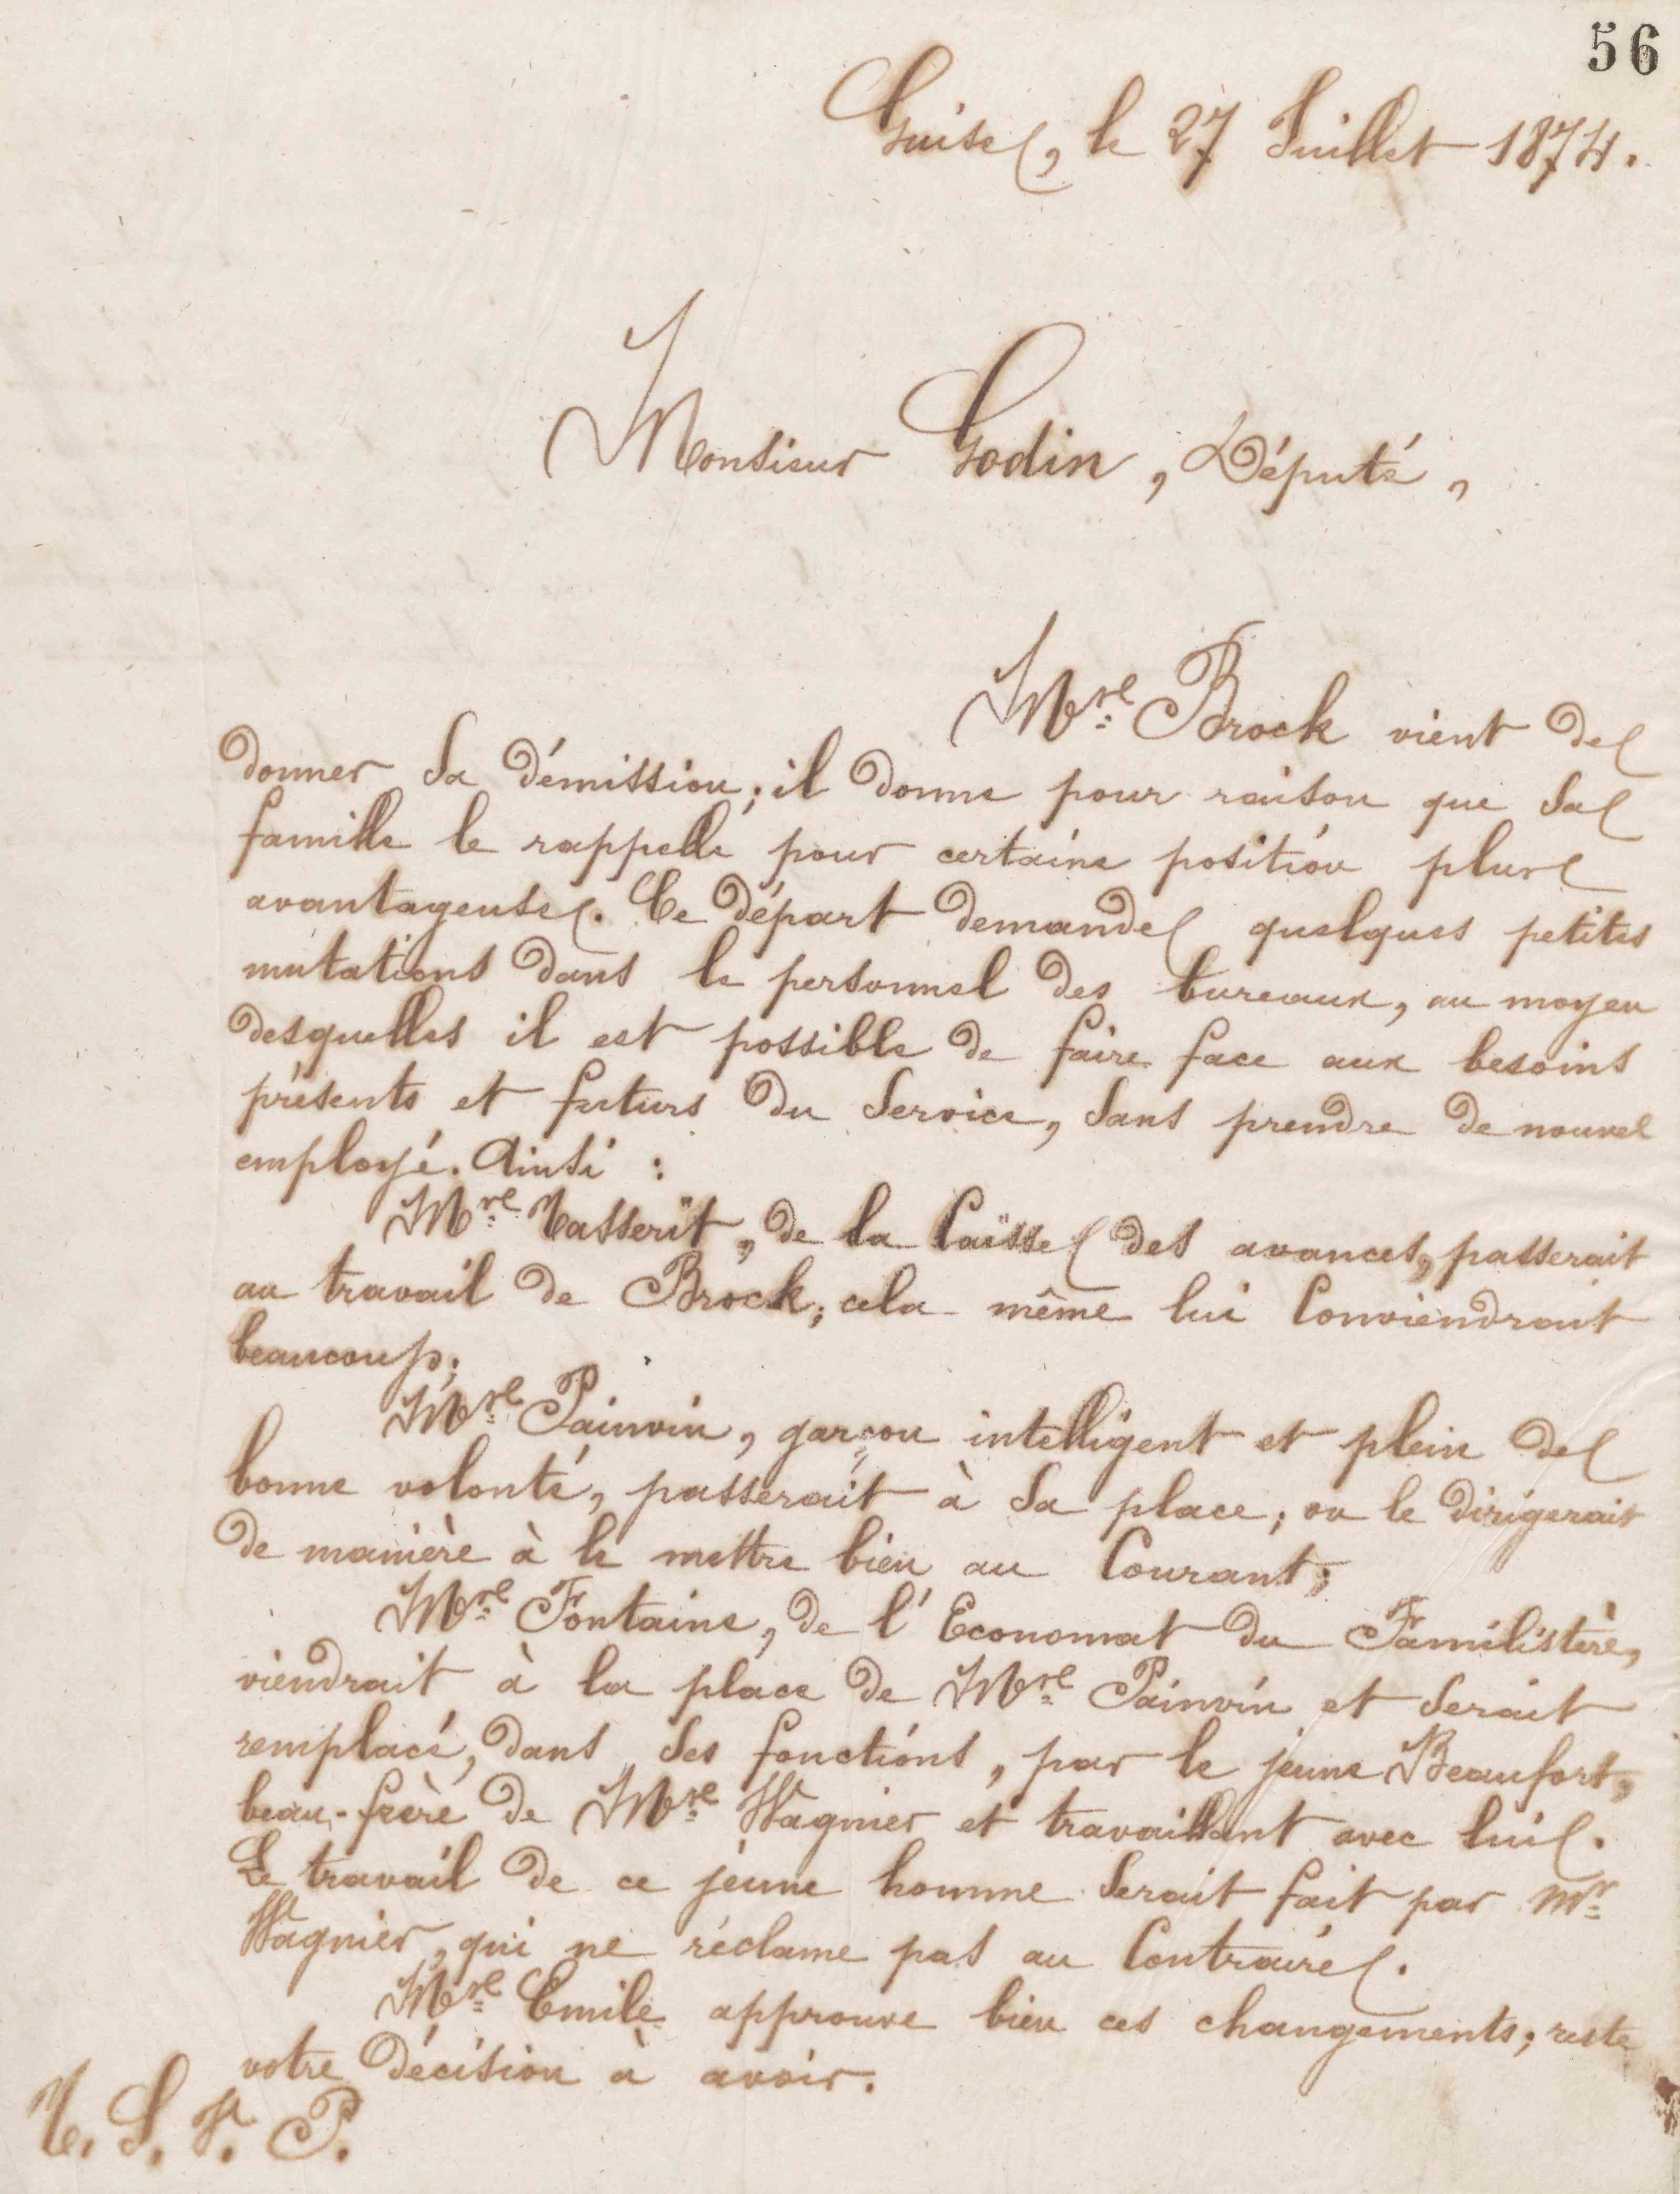 56
Guise, le 27 Juillet 1874.
Monsieur Godin, Député,
Mr. Brock vient de
donner sa démission; il donne pour raison que sa
famille le rappelle pour certaine position plus
avantageuse. Ce départ demande quelques petites
mutations dans le personnel des bureaux, au moyen
desquelles il est possible de faire face aux besoins
présents et futurs du service, sans prendre de nouvel
employé. Ainsi :
Mr. Tasserit, de la Caisse des avances, passerait
au travail de Brock; cela même lui conviendrait
beaucoup;
Mr. Painvin, garçon intelligent et plein de
bonne volonté, passerait à sa place; on le dirigerait
de manière à le mettre bien au courant;
Mr. Fontaine, de l'Economat du Familistère,
viendrait à la place de Mr. Painvin et serait
remplacé, dans ses fonctions, par le jeune Beaufort,
beau-frère de Mr. Wagnier et travaillant avec lui.
Le travail de ce jeune homme serait fait par Mr.
Wagnier, qui ne réclame pas au contraire.
Mr. Emile approuve bien ces changements; reste
votre décision à avoir.
T. S. V. P.